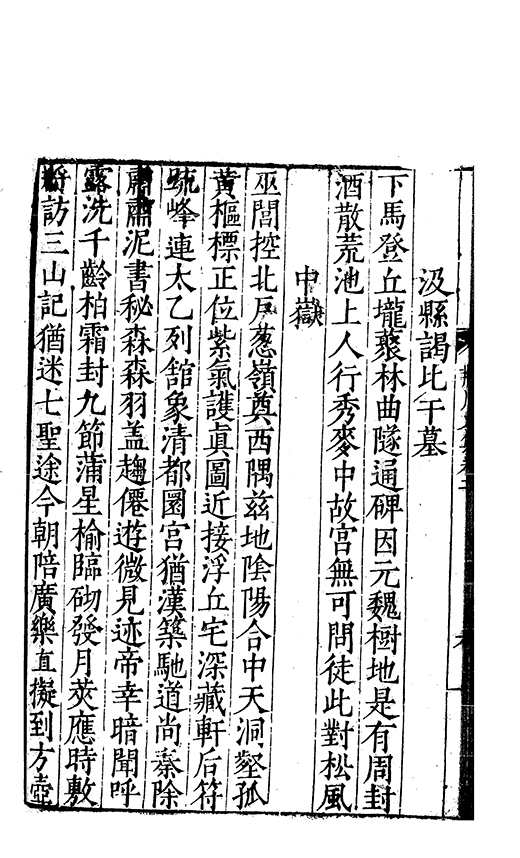 汲縣謁比干墓
下馬登丘壠藂林曲隧通碑因元魏樹地是有周封
酒散荒池上人行秀麥中故宮無可問徒此對松風
中嶽
巫閭控北戶葱嶺奠西隅兹地陰陽合中天洞壑孤
黃樞標正位紫氣護眞圖近接浮丘宅深藏軒后符
疏峰連太乙列舘象清都圜宫猶漢築馳道尚秦除
肅肅泥書秘森森羽盖趨僊遊微見迹帝幸暗聞呼
露洗千齡柏霜封九節蒲星榆臨砌發月莢應時敷
訪三山記猶迷七聖途今朝陪廣樂直擬到方壺